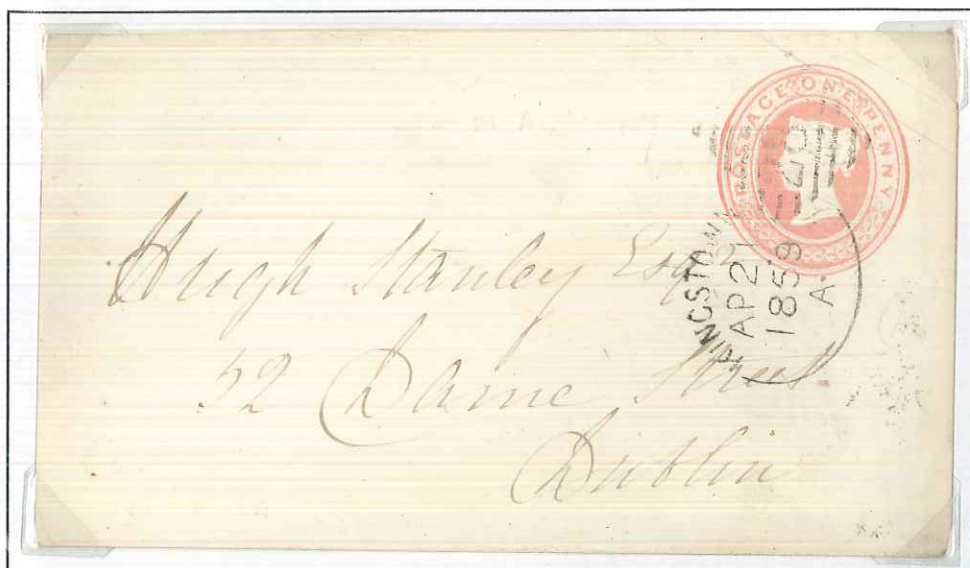 POSTAGE ONE PENNY
KINGSTOWN
AP 21
1859
A
Hugh Stanley Esq
Dame Street
Dublin